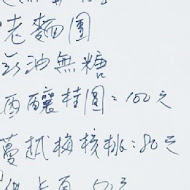 老麵團
無油無糖
酒釀桂圓=100元
蔓越梅核桃=80元